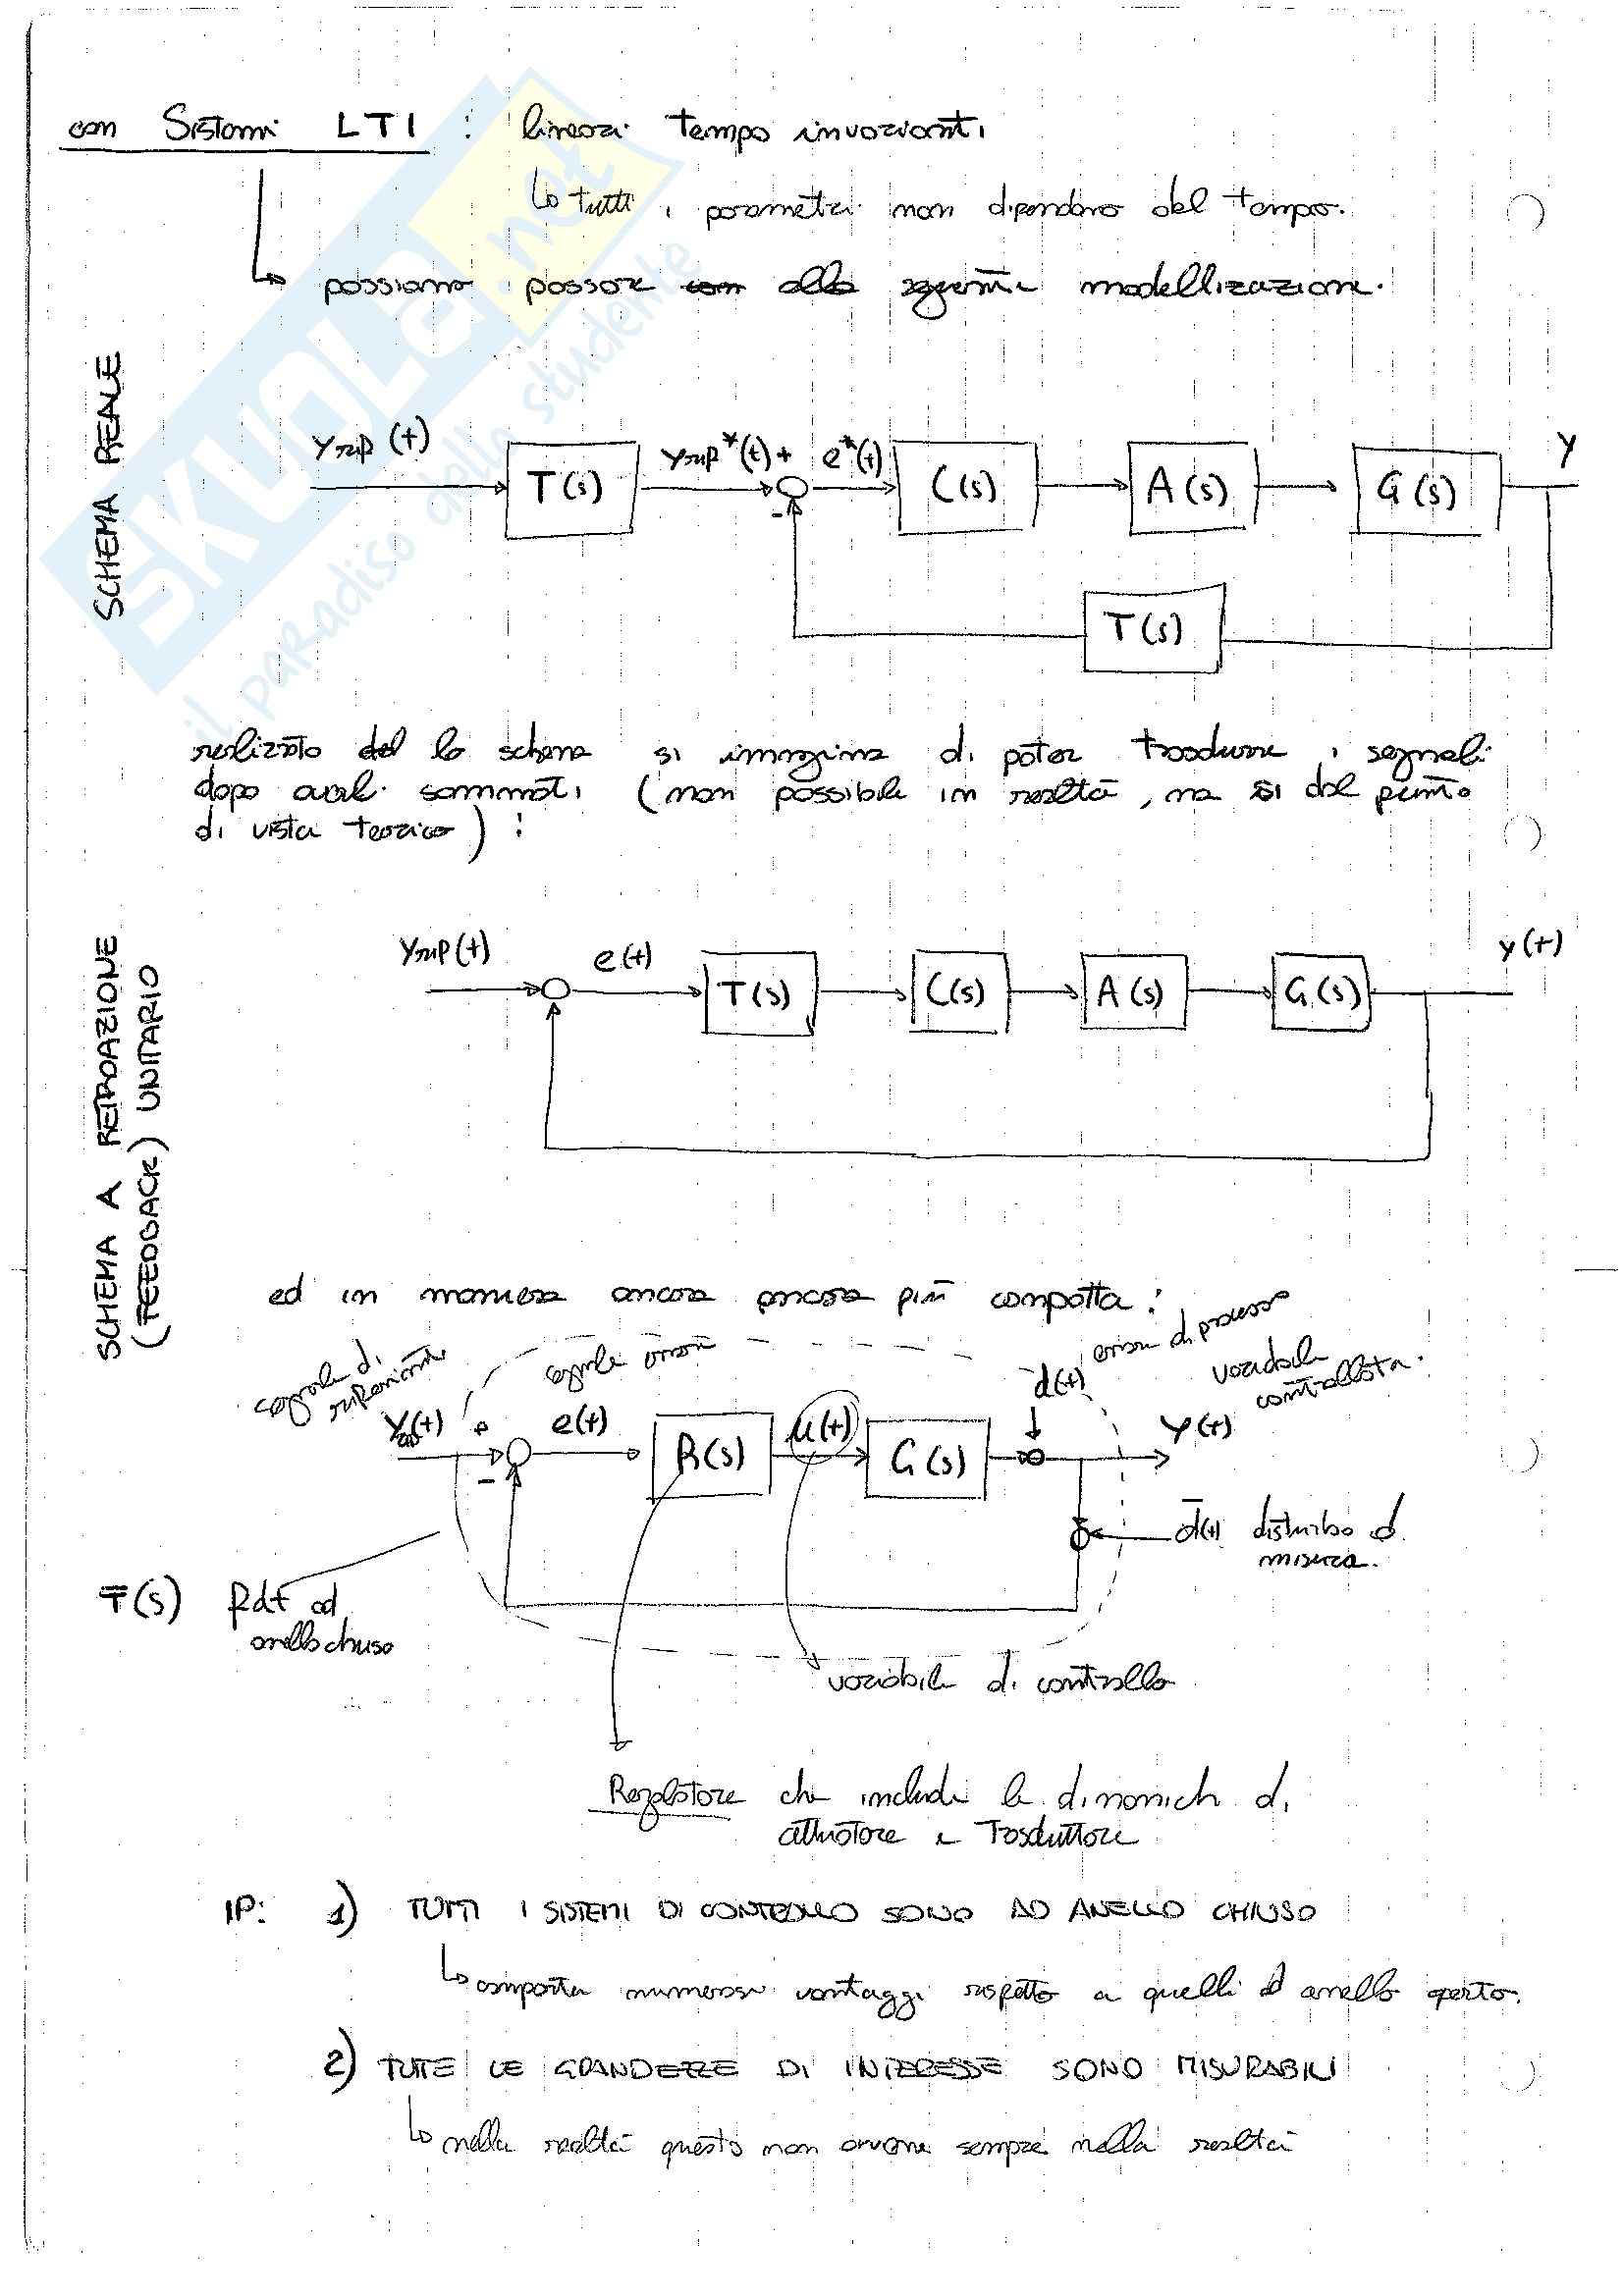 con Sistemi LTI : lineari tempo invarianti
↳ tutti i parametri non dipendono dal tempo.
↳ possiamo passare con alla seguente modellizazione.
SCHEMA REALE
yrip (t)
T(s)
yrip*(t) +
e*(t)
C(s)
A(s)
G(s)
y
-
T(s)
realizzato del lo schema si immagina di poter trasdurre i segnali
dopo averli sommati (non possibile in realtà, ma si dal punto
di vista teorico) :
SCHEMA A RETROAZIONE
(FEEDBACK) UNITARIO
yrip(t)
e(t)
T(s)
C(s)
A(s)
G(s)
y(t)
ed in maniera ancora ancora più compatta :
segnale di
riferimento
segnale errore
d(t)
errore di processo
variabile
controllata.
(t)
+
-
e(t)
R(s)
u(t)
G(s)
y(t)
d̄(t) disturbo di
misura.
F(s) fdt ad
anello chiuso
variabile di controllo
Regolatore che include le dinamiche di
attuatore e Trasduttore
IP: 1) TUTTI I SISTEMI DI CONTROLLO SONO AD ANELLO CHIUSO
↳ comporta numerosi vantaggi rispetto a quelli ad anello aperto.
2) TUTTE LE GRANDEZZE DI INTERESSE SONO MISURABILI
↳ nella realtà questo non avviene sempre nella realtà
SKUOLA.net
il paradiso dello studente